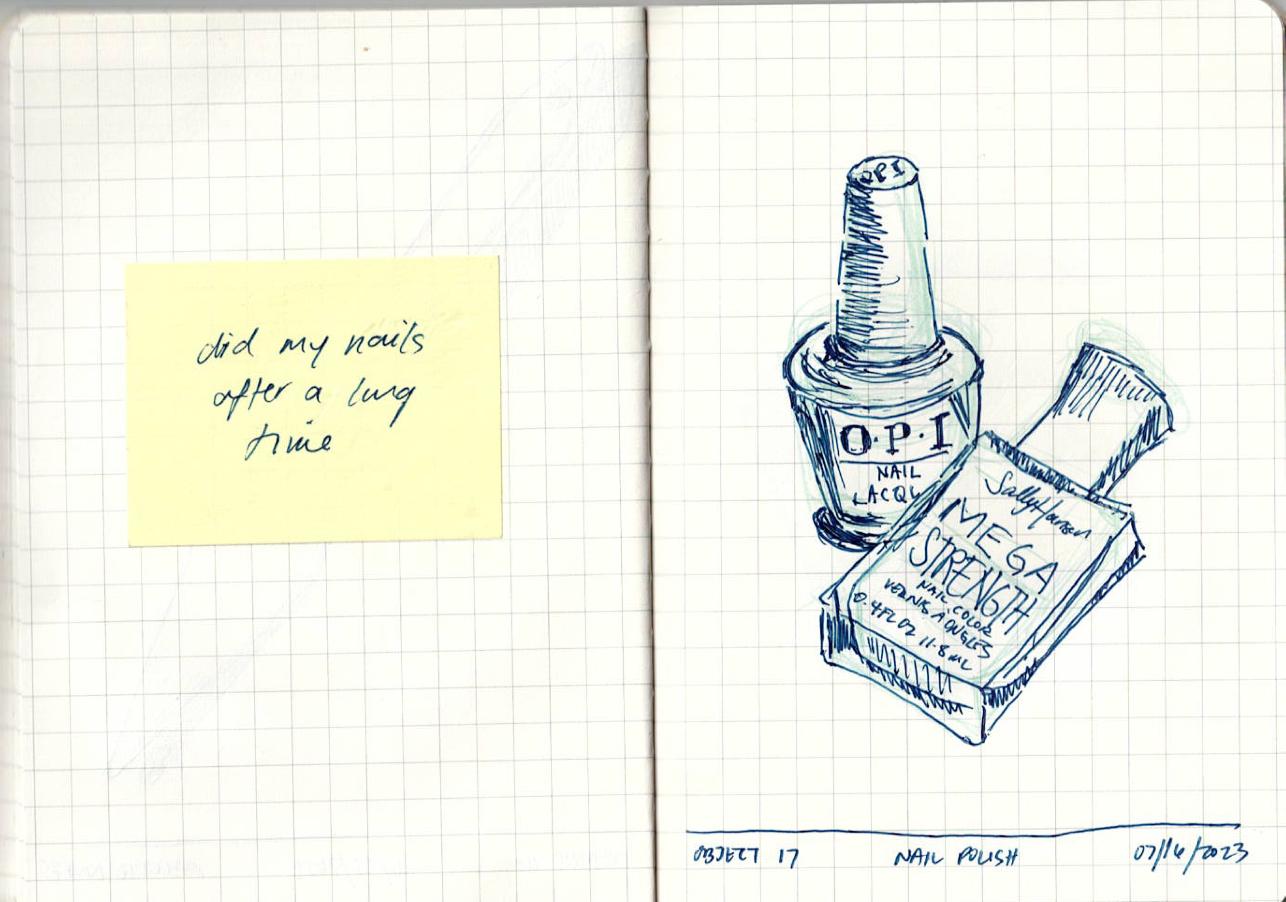 did my nails
after a long
time
OPI
O·P·I
NAIL
LACQU
Sally Hansen
MEGA
STRENGTH
NAIL COLOR
VERNIS A ONGLES
0.4FL OZ 11.8 ML
OBJECT 17 NAIL POLISH 07/16/2023